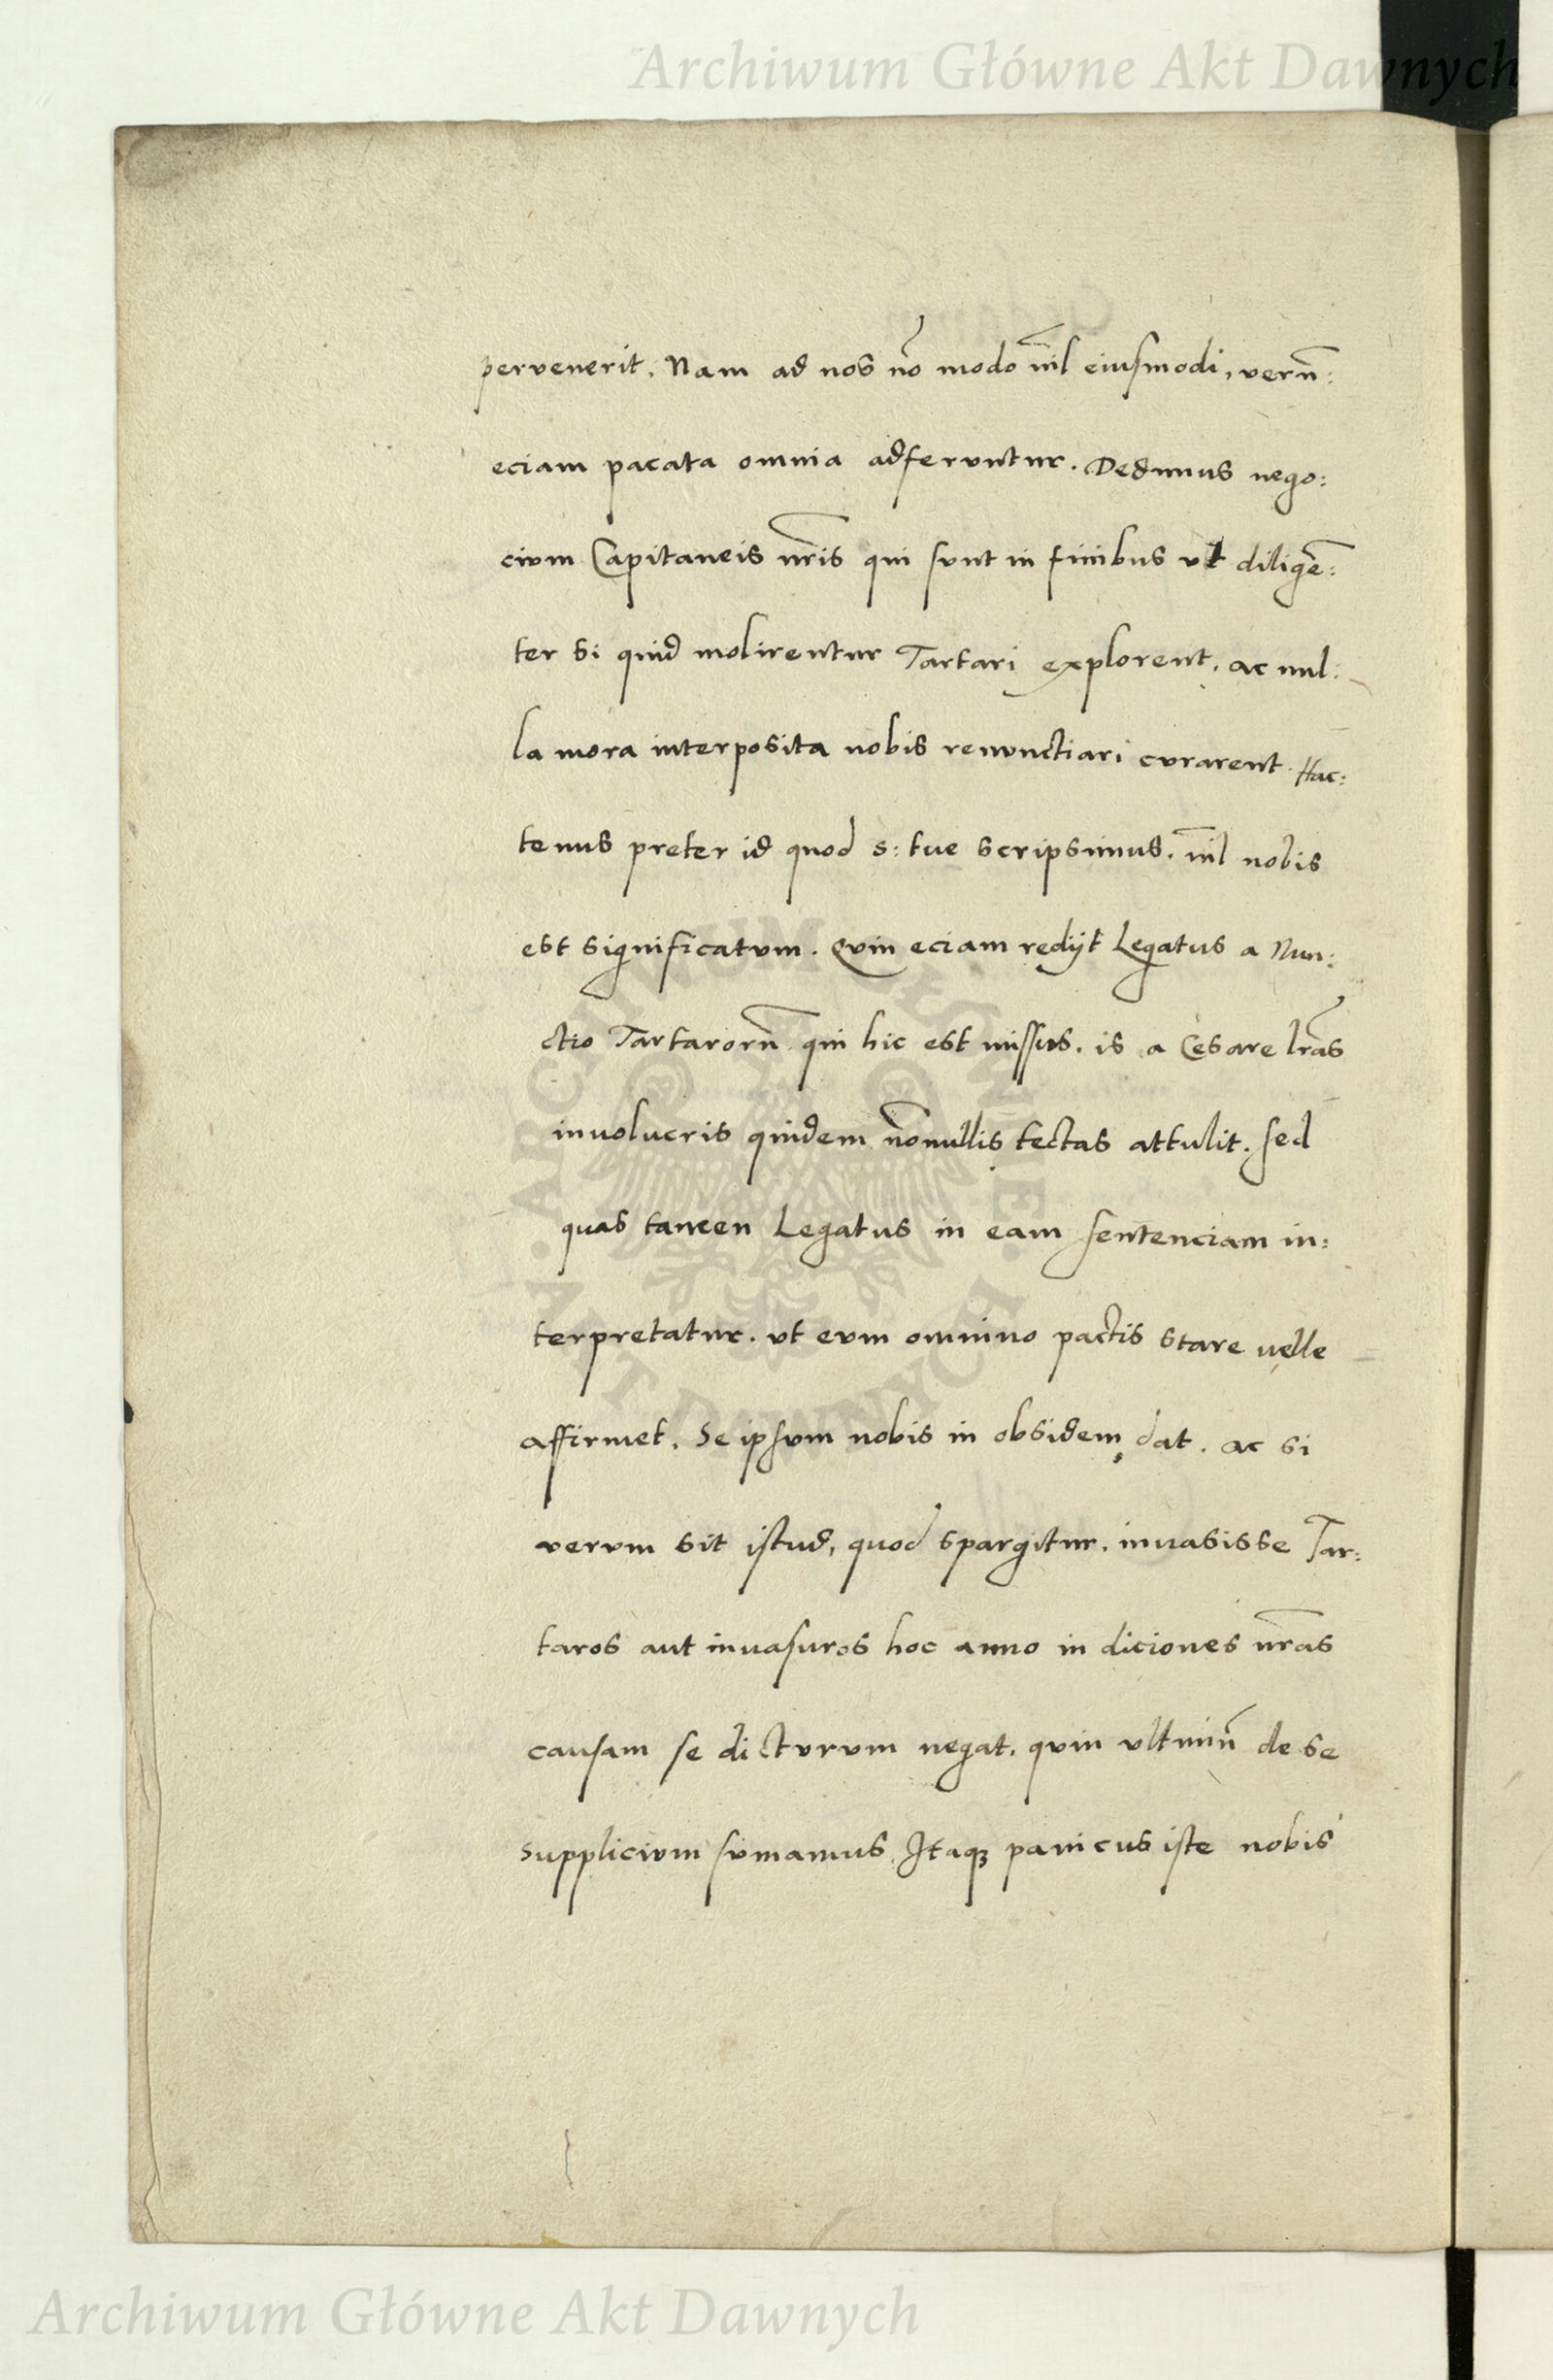 Archiwum Główne Akt Dawnych
pervenerit. Nam ad nos nõ modo nĩl eiusmodi, verũ:
eciam pacata omnia adferuntur. Dedimus nego:
cium Capitaneis nr̃is qui sunt in finibus ut diligẽ:
ter si quid molirentur Tartari explorent, ac nul:
la mora interposita nobis renunctiari curarent. Hac:
tenus preter id quod s: tue scripsimus. nĩl nobis
est significatum. Quin eciam redijt Legatus a Nun:
ctio Tartarorũ qui hic est missus. is a Cesare lr̃as
involucris quidem nõnullis tectas attulit. sed
quas tamen Legatus in eam sentenciam in:
terpretatur. ut eum omnino pactis stare uelle
affirmet. Se ipsum nobis in obsidem dat. ac si
verum sit istud, quod spargitur. inuasisse Tar:
taros aut inuasuros hoc anno in diciones nr̃as
causam se dicturum negat. quin ultimũ de se
supplicium sumamus. Itaqꝫ panicus iste nobis
ARCHIWUM GŁÓWNE. AKT DAWNYCH.
Archiwum Główne Akt Dawnych